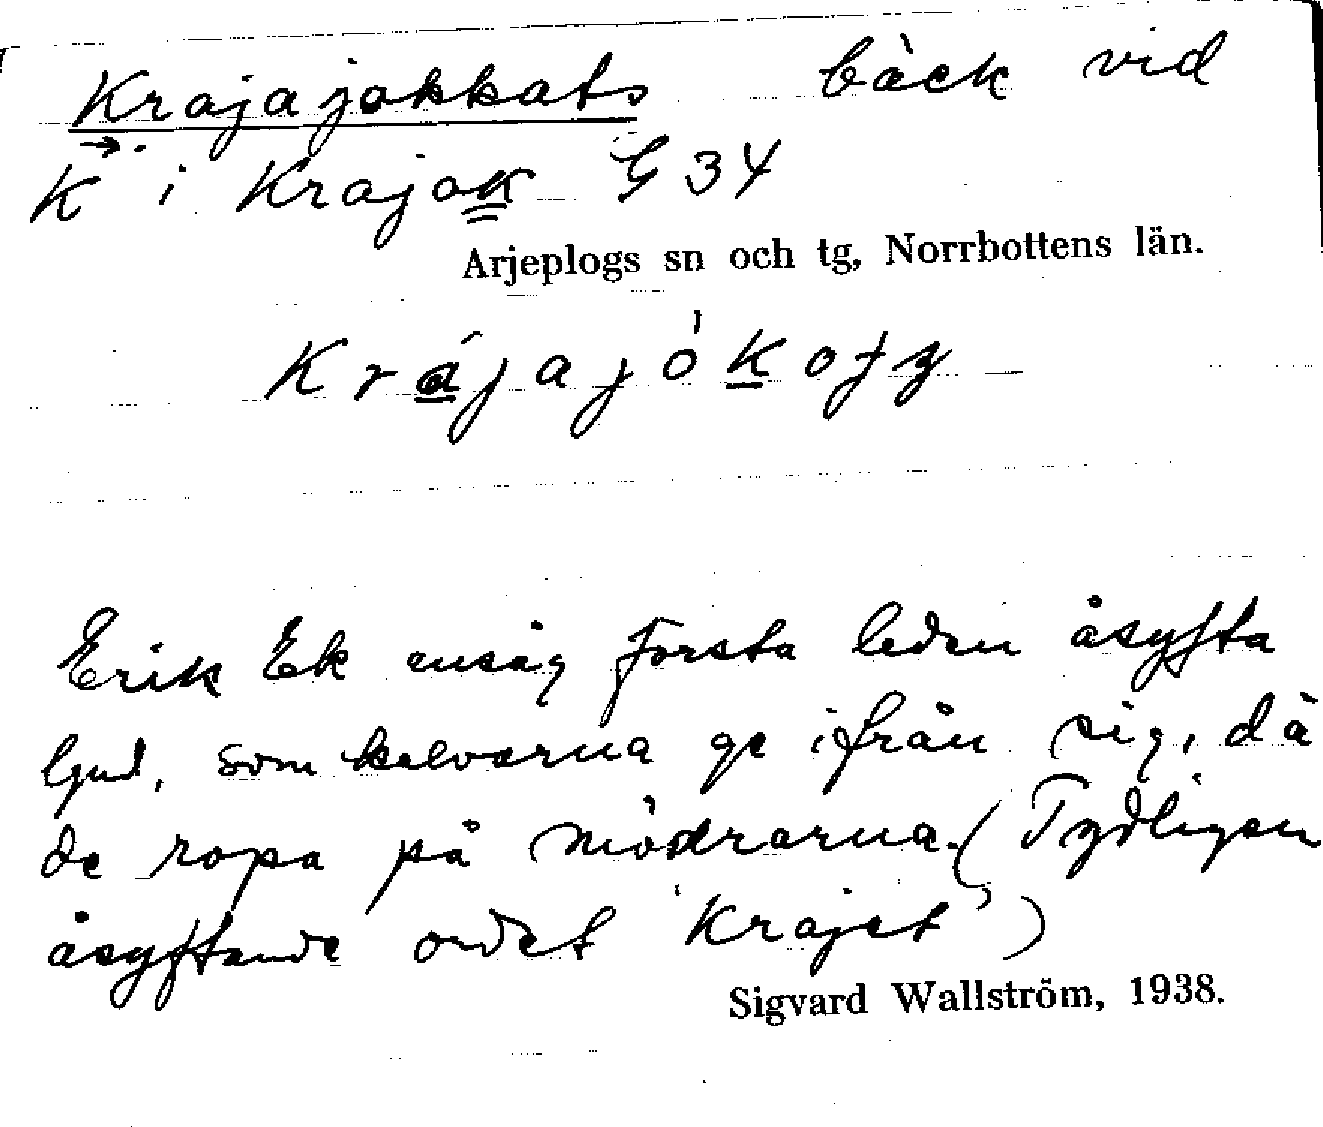 Krajajokkats bäck vid
K i Krajok G 34
Arjeplogs sn och tg, Norrbottens län.
Krájajókoʦ
Erik Ek ansåg första leden åsyfta
ljud, som kalvarna ge ifrån sig, då
de ropa på mödrarna. (Tydligen
åsyftande ordet 'krajet')
Sigvard Wallström, 1938.